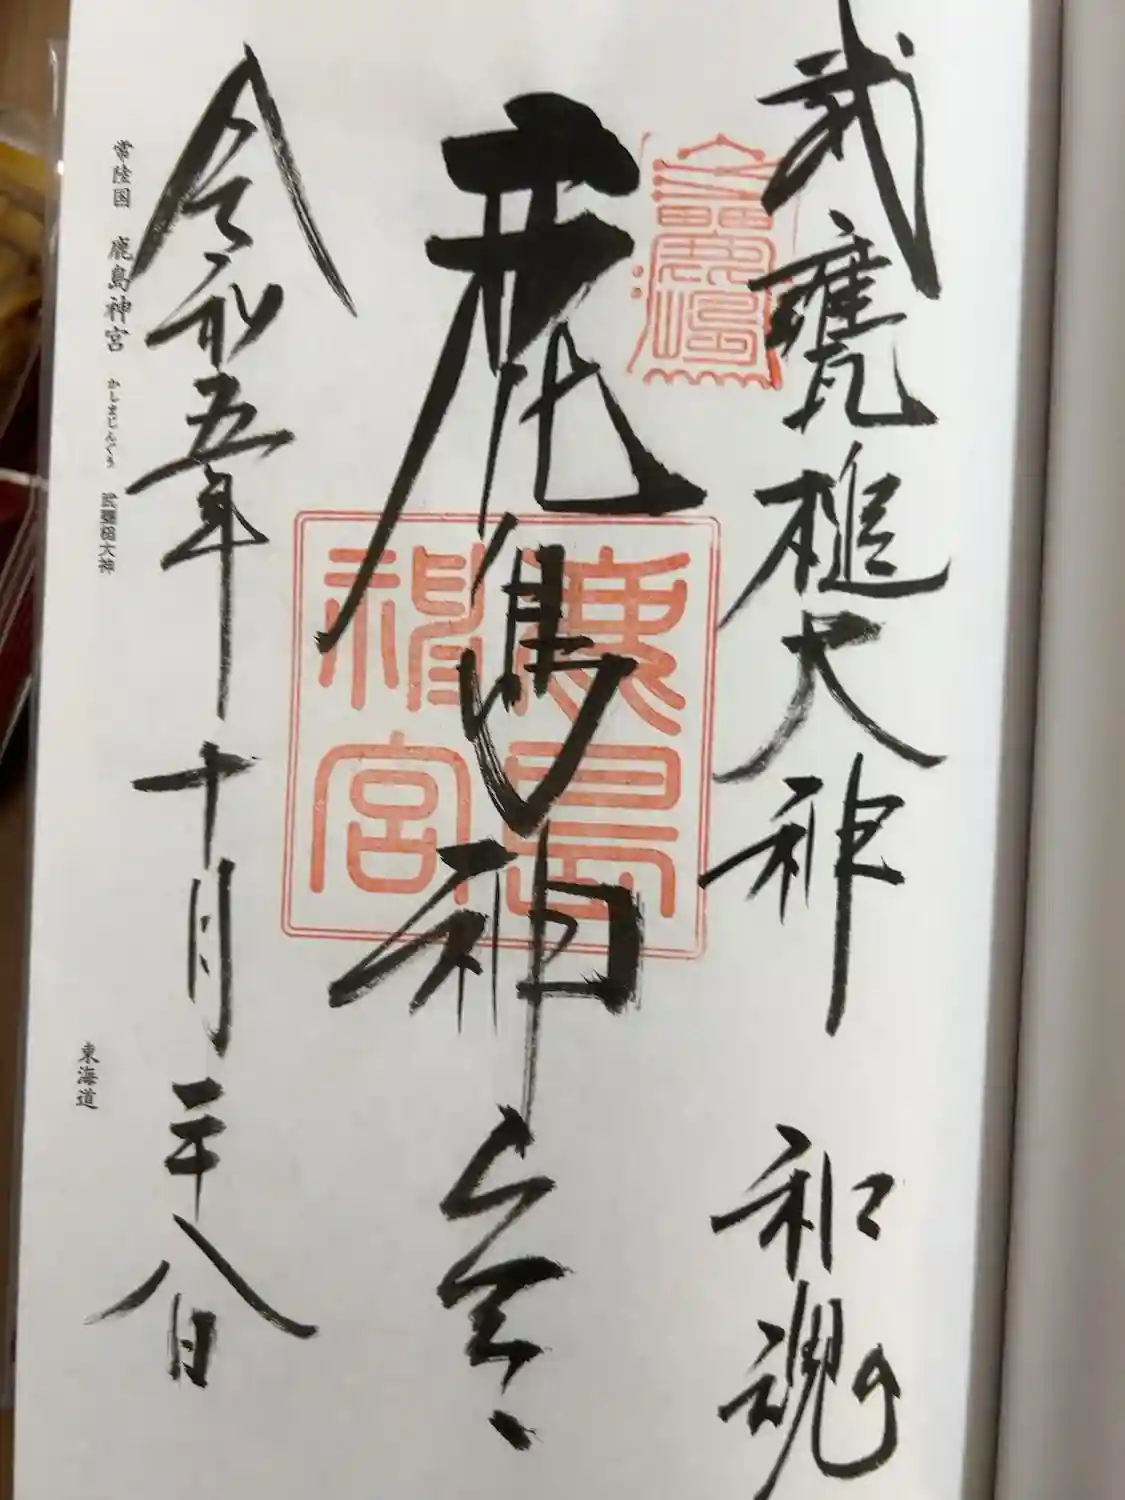 武甕槌大神 和魂
鹿島神宮
令和五年十月二十八日
鹿島神宮
常陸国 鹿島神宮 かしまじんぐう 武甕槌大神
東海道